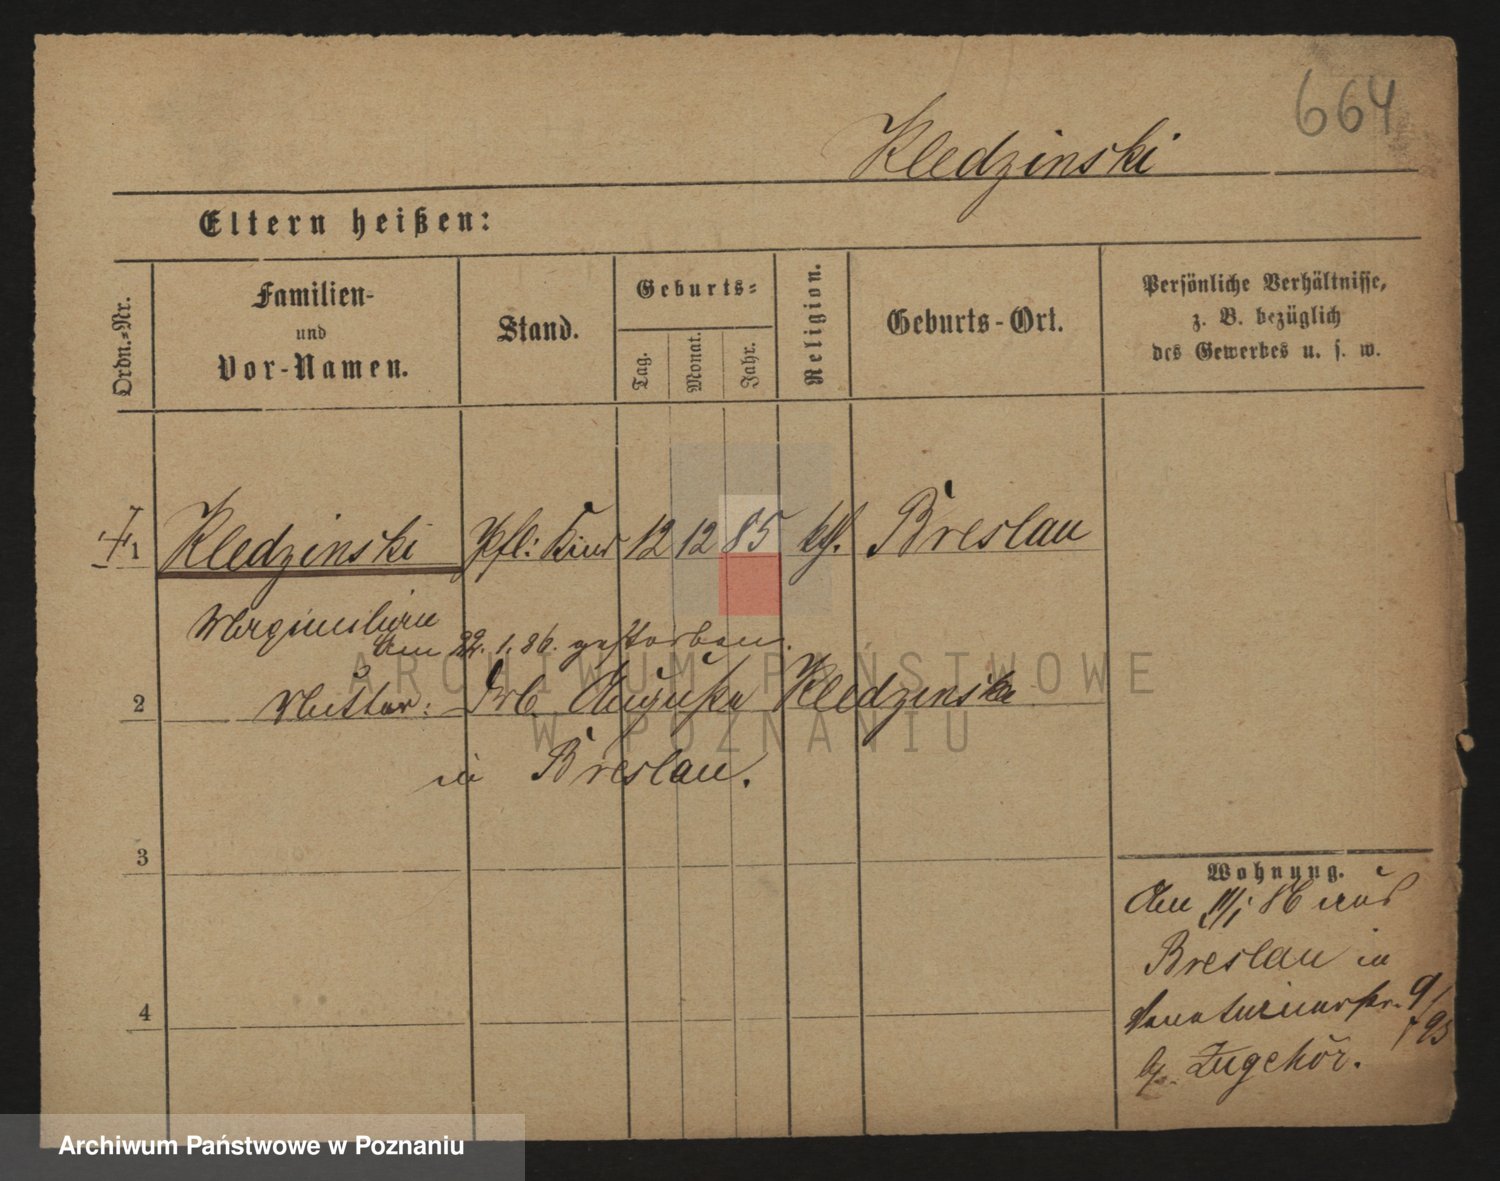 664
Kledzinski
Eltern heißen:
Ordn.-Nr.
Familien-
und
Vor-Namen.
Stand.
Geburts-
Tag.
Monat.
Jahr.
Religion.
Geburts-Ort.
Persönliche Verhältnisse,
z. B. bezüglich
des Gewerbes u. s. w.
1 Kledzinski Pfl: Kind 12 12 85 kth. Breslau
Maximilian
am 22. 1. 86. gestorben.
2 Mutter: Augusta Kledzinska
in Breslau.
3
4
Wohnung.
Am 11/1 86 aus
Breslau in
9/
95
b/. Zugehör.
ARCHIWUM PAŃSTWOWE
W POZNANIU
Archiwum Państwowe w Poznaniu